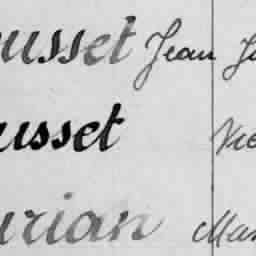 usset Jean Ju
usset Vic
urian Mar